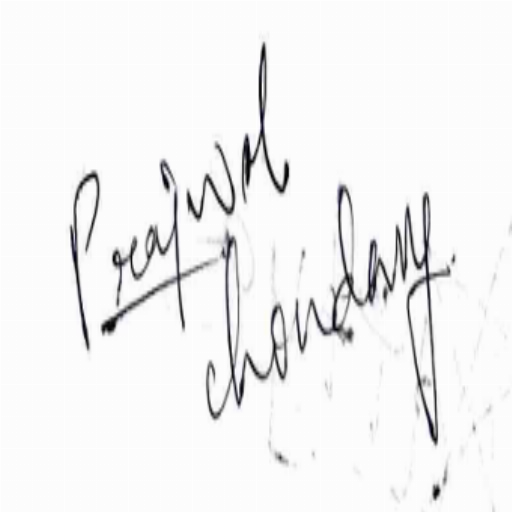 Prajwal
Choudary.